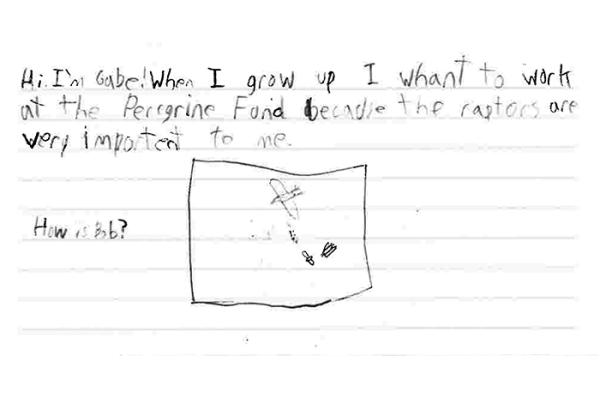 Hi. I'm Gabe! When I grow up I whant to work
at the Peregrine Fund because the raptors are
very importent to me.
How is Bob?